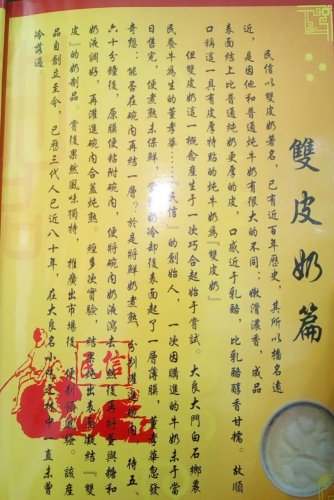 雙皮奶篇
民信以雙皮奶著名，已有近百年歷史，其所以播名遠
近，是因他和普通炖牛奶有很大的不同：嫩滑濃香，成品
表面結上比普通炖奶更厚的皮，口感近于乳酪，比乳酪醇香甘糯。故順
口稱這一具有皮厚特點的炖牛奶為『雙皮奶』
但雙皮奶這一概念産生于一次巧合起始于嘗試。大良大門白石鄉養
民養牛為生的董孝華……『民信』的創始人，一次因購進的牛奶未于當
日售完，便煮熟未保鮮，奶冷却後表面起了一層薄膜，董孝華忽發
奇想：能否在碗内再結一層？于是將鮮奶煮熟，分别灌進碗内，待五、
六十分鐘後，原膜便粘附碗内，便將碗内奶液瀉去，然後再將蛋與糖和
奶液調好，再灌進碗内合蓋炖熟。經多次實驗，結果炖出表面凝結『雙
皮』的奶制品。嘗後果然風味獨特，推廣出市場後，便相領風騷。該産
品自創立至今，已歷三代人已近八十年，在大良名小吃之林中一直未曾
冷落過
民信